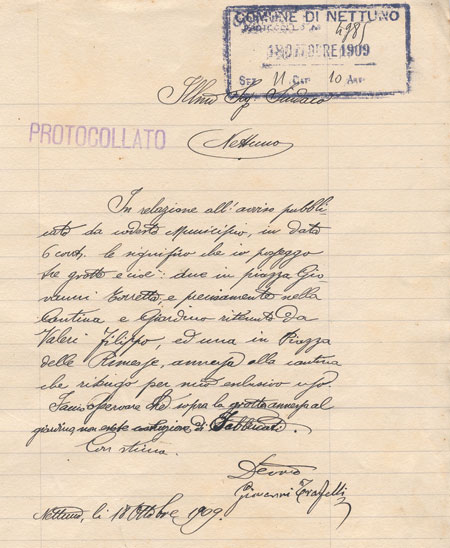 COMUNE DI NETTUNO
4985
18 OTTOBRE 1909
11 10
Illmo Sig. Sindaco
PROTOCOLLATO
Nettuno
In relazione all'avviso pubbli
cato da codesto Municipio, in data
6 corr. le significo che io posseggo
tre grotte e cioè: due in piazza Gio-
vanni Torretta, e precisamente nella
Cantina e Giardino ritenuto da
Valeri Filippo, ed una in Piazza
delle Rimesse, annessa alla cantina
che ritengo per mio esclusivo uso.
osservare che sopra la grotta annessa al
giardino, non esiste costruzione di Fabbricati.
Con stima.
Devmo
Giovanni
Nettuno, li 18 Ottobre 1909.